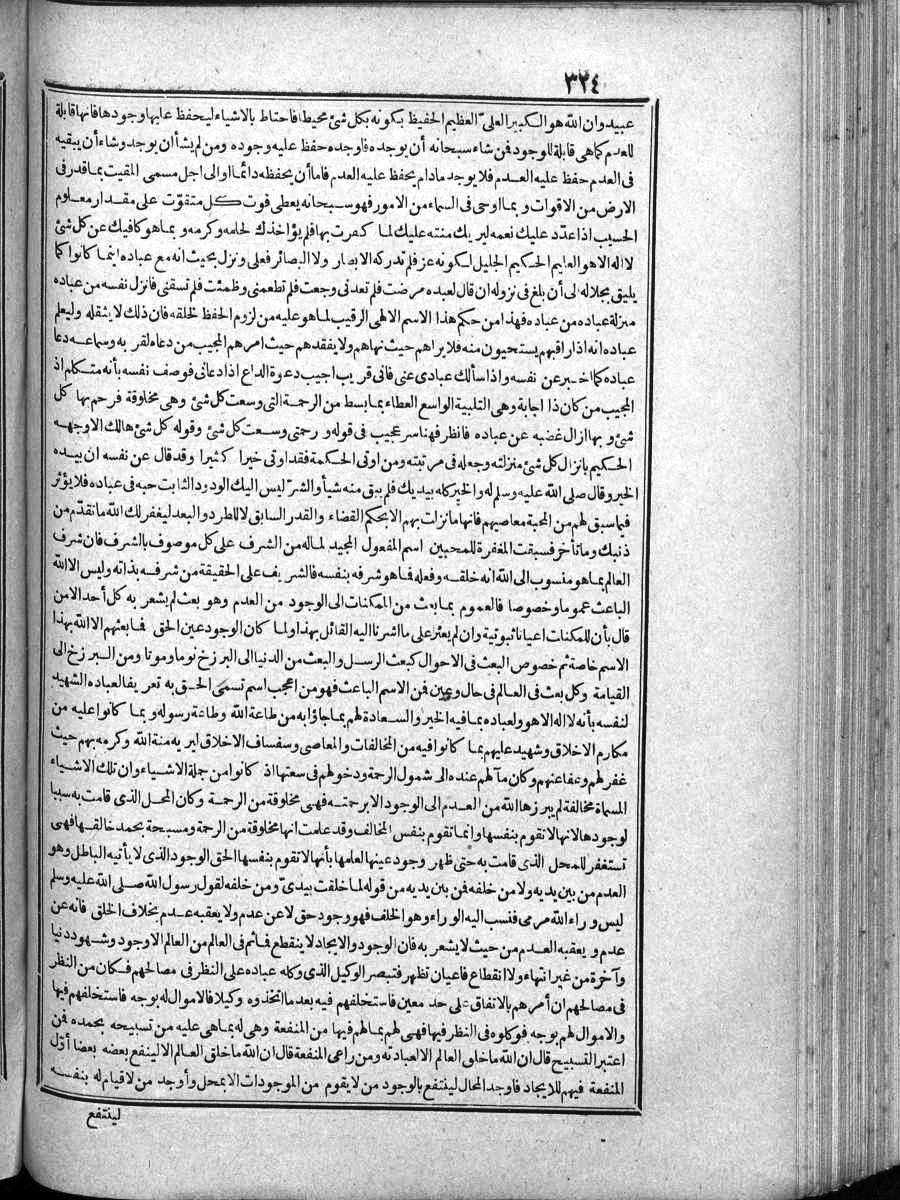 ٣٢٤
عبيد وان الله هو الكبير العلى العظيم الحفيظ بكونه بكل شئ محيط فاحتاط بالاشياء ليحفظ عليها وجودها فانها قابلة
للعدم كما هى قابلة للوجود فمن شاء سبحانه أن يوجده فاوجده حفظ عليه وجوده ومن لم يشأ ان يوجد وشاء أن يبقيه
فى العدم حفظ عليه العدم فلا يوجد مادام يحفظ عليه العدم فاما أن يحفظه دائما او الى اجل مسمى المقيت بما قدر فى
الارض من الاقوات وبما اوحى فى السماء من الامور فهو سبحانه يعطى قوت كل متقوّت على مقدار معلوم
الحسيب اذا عدّد عليك نعمه ليريك منته عليك لما كفرت بها فلم يؤاخذك لحلمه وكرمه وبما هو كافيك عن كل شئ
لا اله الا هو العليم الحكيم الجليل لكونه عز فلم تدركه الابصار ولا البصائر فعلى ونزل بحيث انه مع عباده اينما كانوا كما
يليق بجلاله الى أن بلغ فى نزوله ان قال لعبده مرضت فلم تعدنى وجعت فلم تطعمنى وظمئت فلم تسقنى فانزل نفسه من عباده
منزلة عباده من عباده فهذا من حكم هذا الاسم الالهى الرقيب لما هو عليه من لزوم الحفظ لخلقه فان ذلك لا يثقله وليعلم
عباده انه اذا راقبهم يستحيون منه فلا يراهم حيث نهاهم ولا يفقدهم حيث امرهم المجيب من دعاه لقربه وسماعه دعا
عباده كما اخبر عن نفسه واذا سألك عبادى عنى فانى قريب اجيب دعوة الداع اذا دعانى فوصف نفسه بأنه متكلم اذ
المجيب من كان ذا اجابة وهى التلبية الواسع العطاء بما بسط من الرحمة التى وسعت كل شئ وهى مخلوقة فرحم بها كل
شئ وبها ازال غضبه عن عباده فانظر فهنا سر عجيب فى قوله ورحمتى وسعت كل شئ وقوله كل شئ هالك الا وجهه
الحكيم بانزال كل شئ منزلته وجعله فى مرتبته ومن اوتى الحكمة فقد اوتى خيرا كثيرا وقد قال عن نفسه ان بيده
الخير وقال صلى الله عليه وسلم له والخير كله بيديك فلم يبق منه شيأ والشر ليس اليك الودود الثابت حبه فى عباده فلا يؤثر
فيما سبق لهم من المحبة معاصيهم فانها ما نزلت بهم الا بحكم القضاء والقدر السابق لا للطرد والبعد ليغفر لك الله ما تقدّم من
ذنبك وما تأخر فسبقت المغفرة للمحبين اسم المفعول المجيد لما له من الشرف على كل موصوف بالشرف فان شرف
العالم بما هو منسوب الى الله انه خلقه وفعله فما هو شرفه بنفسه فالشريف على الحقيقة من شرفه بذاته وليس الا الله
الباعث عموما وخصوصا فالعموم بما بعث من الممكنات الى الوجود من العدم وهو بعث لم يشعر به كل أحد الا من
قال بأن للممكنات اعيانا ثبوتية وان لم يعثر على ما اشرنا اليه القائل بهذا ولما كان الوجود عين الحق فما بعثهم الا الله بهذا
الاسم خاصة ثم خصوص البعث فى الاحوال كبعث الرسل والبعث من الدنيا الى البرزخ نوما وموتا ومن البرزخ الى
القيامة وكل بعث فى العالم فى حال وعين فمن الاسم الباعث فهو من اعجب اسم تسمى الحق به تعريفا لعباده الشهيد
لنفسه بأنه لا اله الا هو ولعباده بما فيه الخير والسعادة لهم بما جاؤا به من طاعة الله وطاعة رسوله وبما كانوا عليه من
مكارم الاخلاق وشهيد عليهم بما كانوا فيه من المخالفات والمعاصى وسفساف الاخلاق ليريه منة الله وكرمه بهم حيث
غفر لهم وعفا عنهم وكان مآلهم عنده الى شمول الرحمة ودخولهم فى سعتها اذ كانوا من جملة الاشياء وان تلك الاشياء
المسماة مخالفة لم يبرزها الله من العدم الى الوجود الا برحمته فهى مخلوقة من الرحمة وكان المحل الذى قامت به سببا
لوجودها لانها لا تقوم بنفسها وانما تقوم بنفس المخالف وقد علمت انها مخلوقة من الرحمة ومسبحة بحمد خالقها فهى
تستغفر للمحل الذى قامت به حتى ظهر وجود عينها لعلمها بأنها لا تقوم بنفسها الحق الوجود الذى لا يأتيه الباطل وهو
العدم من بين يديه ولا من خلفه فمن بين يديه من قوله لما خلقت بيدىّ ومن خلفه لقول رسول الله صلى الله عليه وسلم
ليس وراء الله مرمى فنسب اليه الوراء وهو الخلف فهو وجود حق لا عن عدم ولا يعقبه عدم بخلاف الخلق فانه عن
عدم ويعقبه العدم من حيث لا يشعر به فان الوجود والايجاد لا ينقطع فما ثم فى العالم من العالم الا وجود وشهود دنيا
وآخرة من غير انتهاء ولا انقطاع فاعيان تظهر فتبصر الوكيل الذى وكله عباده على النظر فى مصالحهم فكان من النظر
فى مصالحهم ان أمرهم بالانفاق على حد معين فاستخلفهم فيه بعد ما اتخذوه وكيلا فالاموال له بوجه فاستخلفهم فيها
والاموال لهم بوجه فوكلوه فى النظر فيها فهى لهم بما لهم فيها من المنفعة وهى له بما هى عليه من تسبيحه بحمده فمن
اعتبر التسبيح قال ان الله ما خلق العالم الا لعبادته ومن راعى المنفعة قال ان الله ما خلق العالم الا لينفع بعضه بعضا أوّل
المنفعة فيهم للايجاد فاوجد المحال لينتفع بالوجود من لا يقوم من الموجودات الا بمحل وأوجد من لا قيام له بنفسه
لينتفع